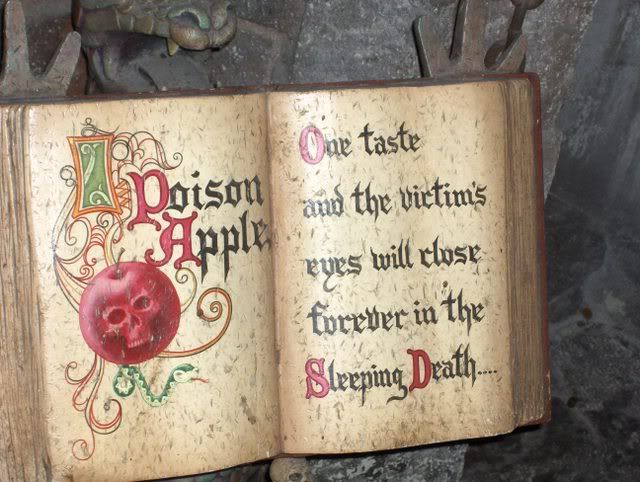 Poison
Apple
One taste
and the victim's
eyes will close
forever in the
Sleeping Death....